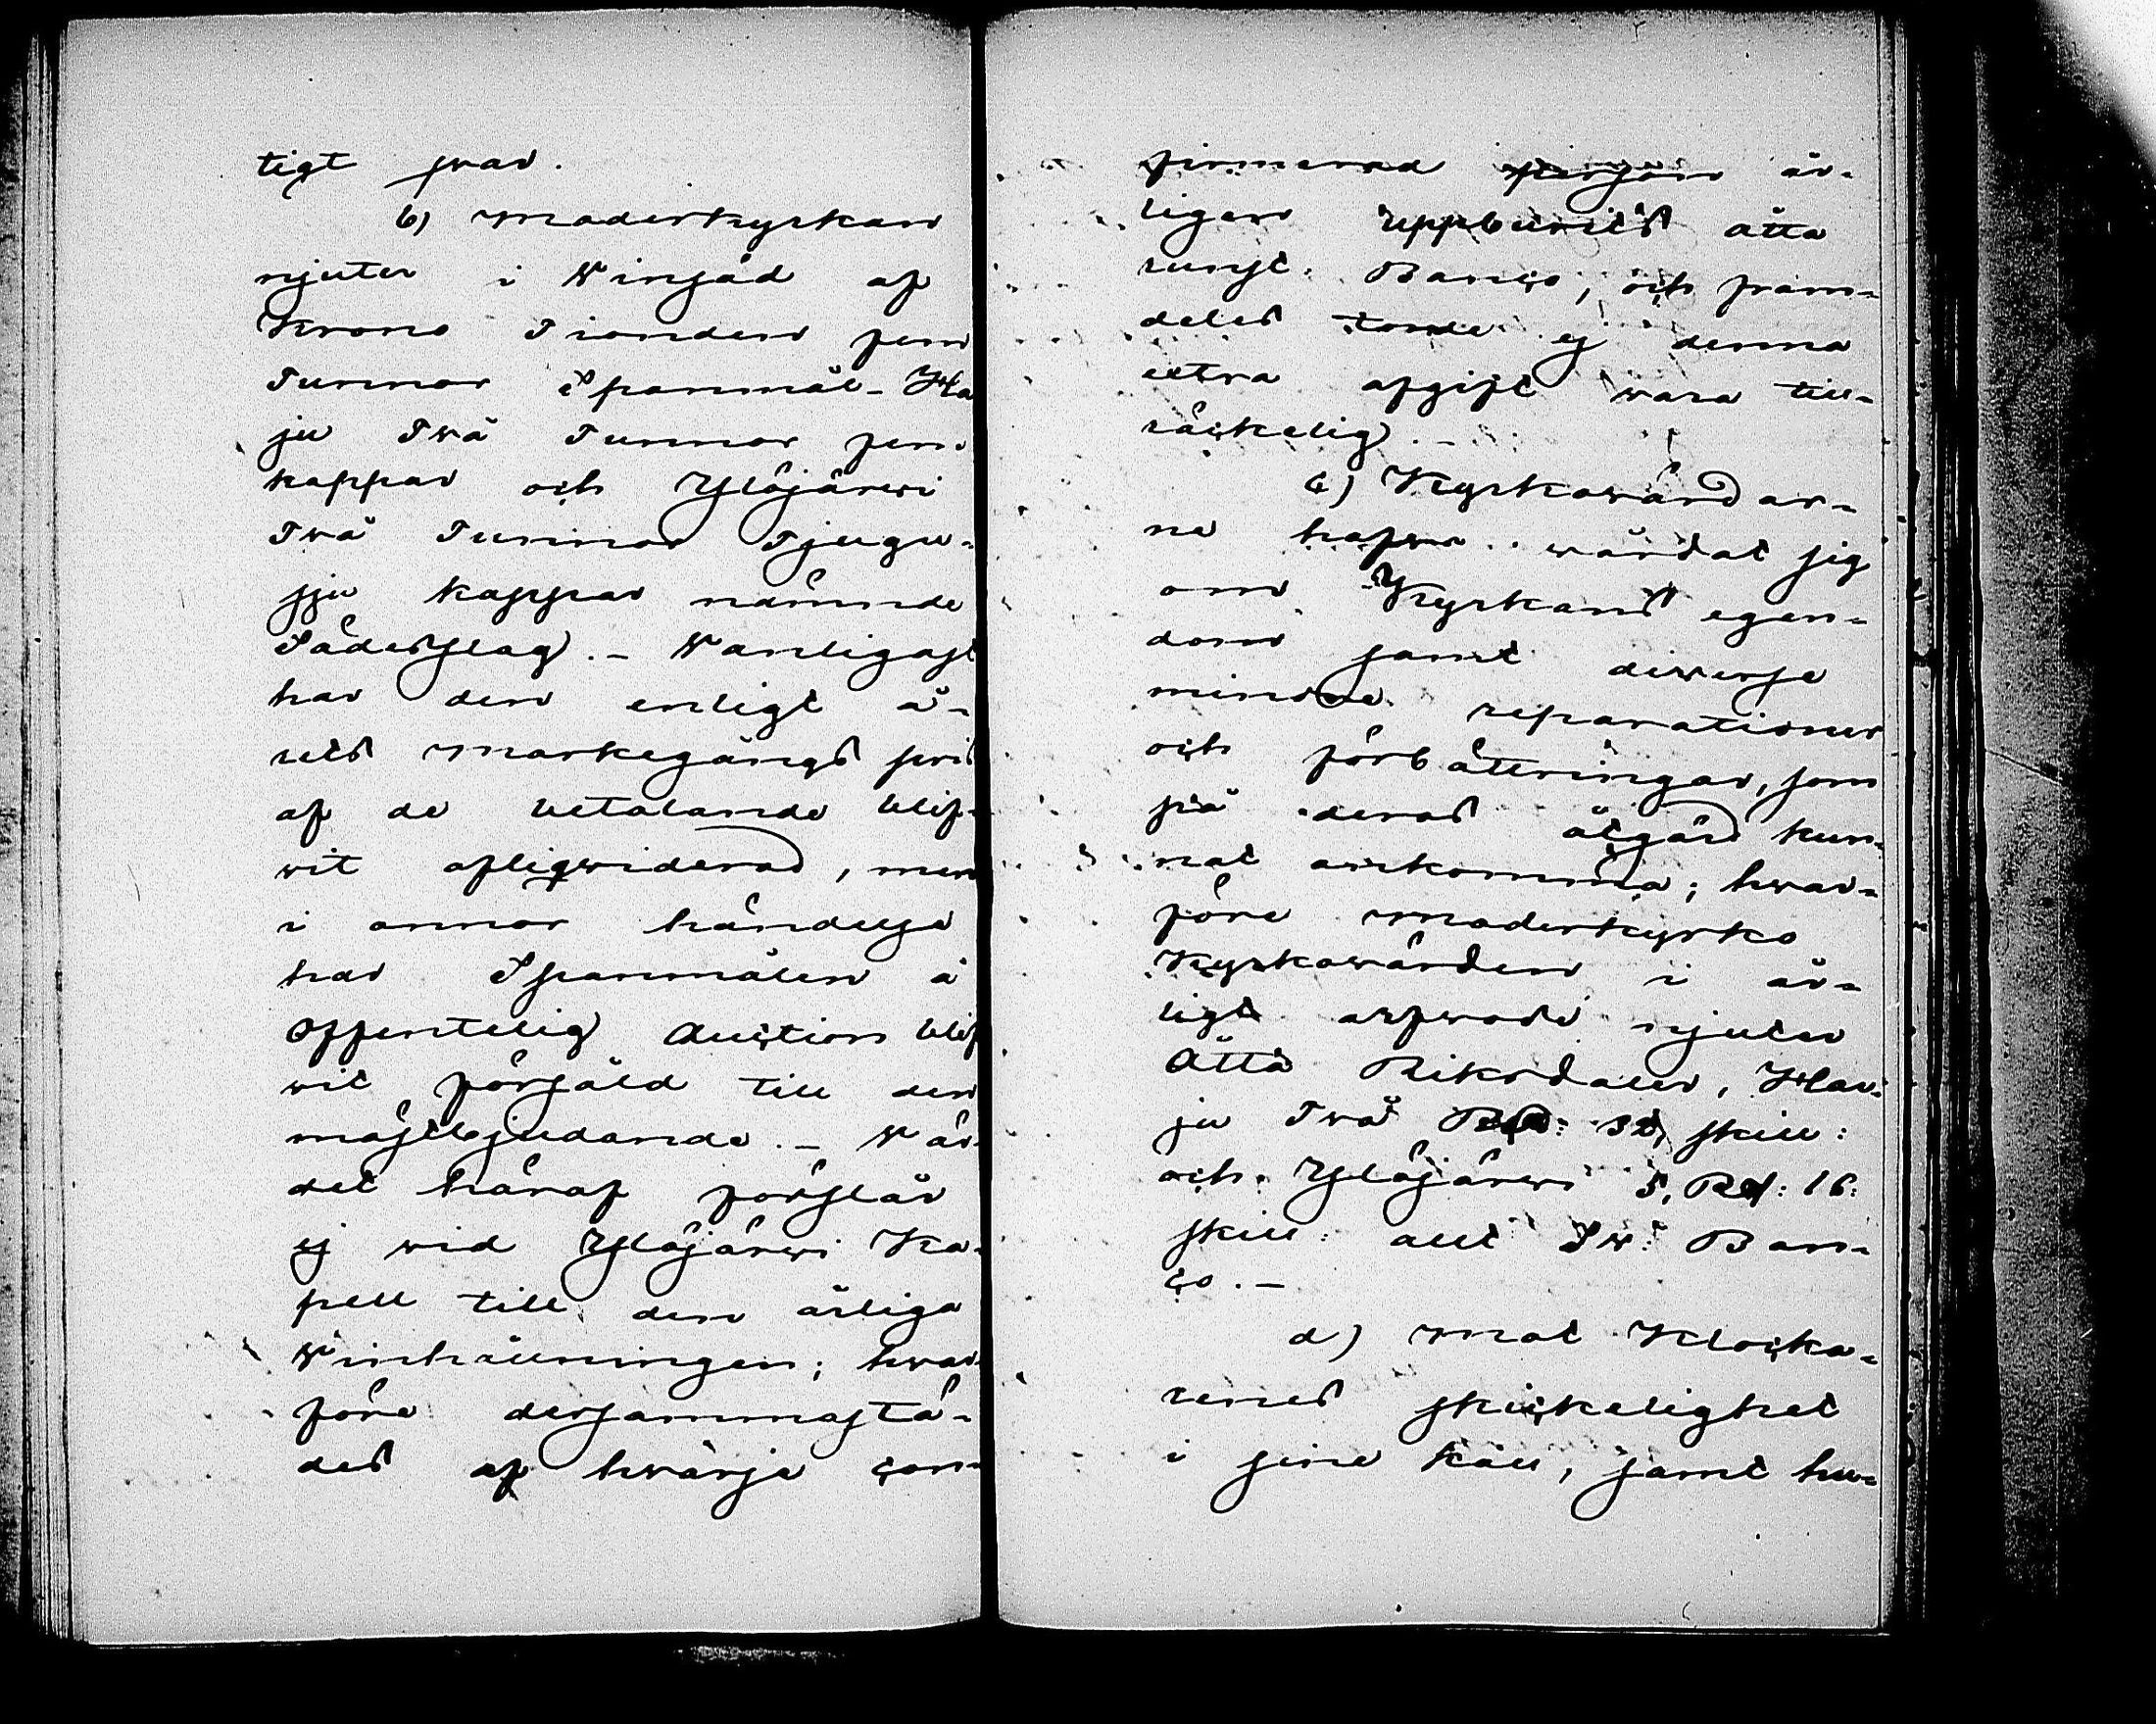 tigt swar.
b) Moderkyrkan
njuter i Winsäd af
Krono Tionden fem
Tunnor Spanmål - Ha
ju Två Tunnor fem
kappar och Ylöjärwi
Två Tunnor Tjugu-
sju kappar nämnde
Sädesslag. - Wanligast
har den enligt å-
rets Markegångs pris
af de betalande blif-
wit afliqwiderad, men
i annor händelse
har Spanmålen å
offentelig Auction blif
wit försåld till den
mästbjudande. - Wär-
det häraf förslår
ej wid Ylöjärwi Ka-
pell till den årliga
Winhållningen; hwar-
före dersammastä-
des af hwarje con-
firmerad person år-
ligen uppburits åtta
runst. Banco, och fram-
deles torde ej denna
extra afgift wara till-
räckelig. -
c) Kyrkowärdar-
ne hafwa wårdat sig
om Kyrkans egen-
dom samt diwerse
mindre reparationer
och förbättringar, som
på deras åtgärd kun-
nat ankomma; hwar-
före Moderkyrko
Kyrkowärden i år-
ligt arfwode njuter
Åtta Riksdaler, Har-
ju Två Rd: 32, skill:
och Ylöjärwi 5, Rd: 16.
skill: allt Sw: Ban-
co. -
d) Mot Klocka-
renes skickelighet
i sine kall, samt hu-